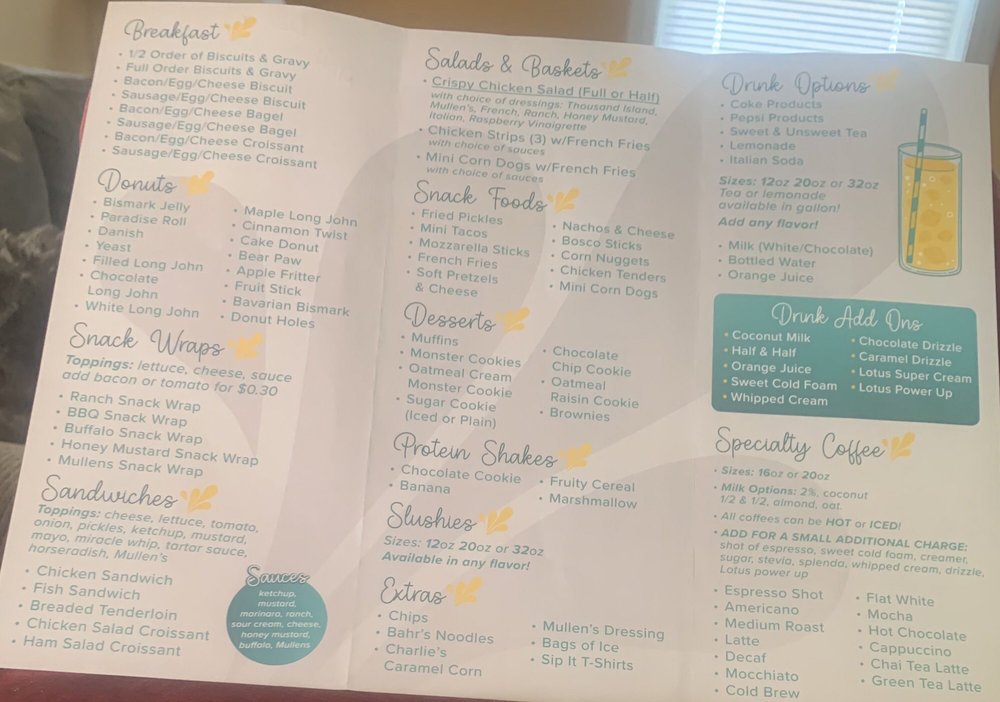 Breakfast
• 1/2 Order of Biscuits & Gravy
• Full Order Biscuits & Gravy
• Bacon/Egg/Cheese Biscuit
• Sausage/Egg/Cheese Biscuit
• Bacon/Egg/Cheese Bagel
• Sausage/Egg/Cheese Bagel
• Bacon/Egg/Cheese Croissant
• Sausage/Egg/Cheese Croissant
Donuts
• Bismark Jelly
• Paradise Roll
• Danish
• Yeast
• Filled Long John
• Chocolate
Long John
• White Long John
• Maple Long John
• Cinnamon Twist
• Cake Donut
• Bear Paw
• Apple Fritter
• Fruit Stick
• Bavarian Bismark
• Donut Holes
Snack Wraps
Toppings: lettuce, cheese, sauce
add bacon or tomato for $0.30
• Ranch Snack Wrap
• BBQ Snack Wrap
• Buffalo Snack Wrap
• Honey Mustard Snack Wrap
• Mullens Snack Wrap
Sandwiches
Toppings: cheese, lettuce, tomato,
onion, pickles, ketchup, mustard,
mayo, miracle whip, tartar sauce,
horseradish, Mullen's
• Chicken Sandwich
• Fish Sandwich
• Breaded Tenderloin
• Chicken Salad Croissant
• Ham Salad Croissant
Sauces
ketchup,
mustard,
marinara, ranch,
sour cream, cheese,
honey mustard,
buffalo, Mullens
Salads & Baskets
• Crispy Chicken Salad (Full or Half)
with choice of dressings: Thousand Island,
Mullen's, French, Ranch, Honey Mustard,
Italian, Raspberry Vinaigrette
• Chicken Strips (3) w/French Fries
with choice of sauces
• Mini Corn Dogs w/French Fries
with choice of sauces
Snack Foods
• Fried Pickles
• Mini Tacos
• Mozzarella Sticks
• French Fries
• Soft Pretzels
& Cheese
• Nachos & Cheese
• Bosco Sticks
• Corn Nuggets
• Chicken Tenders
• Mini Corn Dogs
Desserts
• Muffins
• Monster Cookies
• Oatmeal Cream
Monster Cookie
• Sugar Cookie
(Iced or Plain)
• Chocolate
Chip Cookie
• Oatmeal
Raisin Cookie
• Brownies
Protein Shakes
• Chocolate Cookie
• Banana
• Fruity Cereal
• Marshmallow
Slushies
Sizes: 12oz 20oz or 32oz
Available in any flavor!
Extras
• Chips
• Bahr's Noodles
• Charlie's
Caramel Corn
• Mullen's Dressing
• Bags of Ice
• Sip It T-Shirts
Drink Options
• Coke Products
• Pepsi Products
• Sweet & Unsweet Tea
• Lemonade
• Italian Soda
Sizes: 12oz 20oz or 32oz
Tea or lemonade
available in gallon!
Add any flavor!
• Milk (White/Chocolate)
• Bottled Water
• Orange Juice
Drink Add Ons
• Coconut Milk
• Half & Half
• Orange Juice
• Sweet Cold Foam
• Whipped Cream
• Chocolate Drizzle
• Caramel Drizzle
• Lotus Super Cream
• Lotus Power Up
Specialty Coffee
• Sizes: 16oz or 20oz
• Milk Options: 2%, coconut
1/2 & 1/2, almond, oat.
• All coffees can be HOT or ICED!
• ADD FOR A SMALL ADDITIONAL CHARGE:
shot of espresso, sweet cold foam, creamer,
sugar, stevia, splenda, whipped cream, drizzle,
Lotus power up
• Espresso Shot
• Americano
• Medium Roast
• Latte
• Decaf
• Mocchiato
• Cold Brew
• Flat White
• Mocha
• Hot Chocolate
• Cappuccino
• Chai Tea Latte
• Green Tea Latte